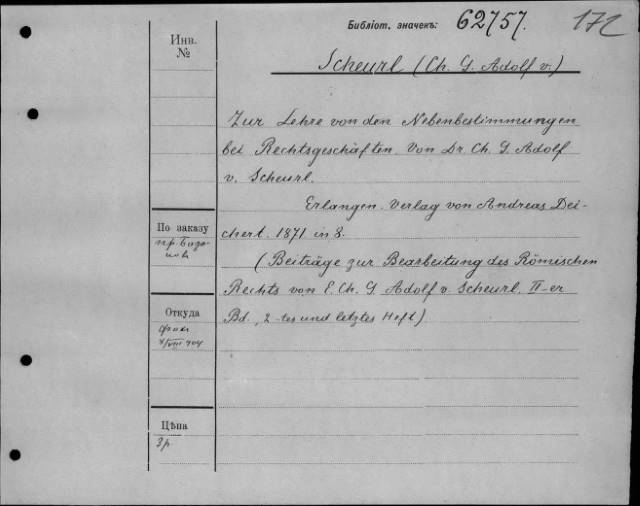 Библіот. значекъ: 62757. 172
Инв.
№
Scheurl (Ch. G. Adolf v.)
Zur Lehre von den Nebenbestimmungen
bei Rechtsgeschäften. Von Dr. Ch. G. Adolf
v. Scheurl.
Erlangen. Verlag von Andreas Dei-
chert. 1871 in 8.
(Beiträge zur Bearbeitung des Römischen
Rechts von E. Ch. G. Adolf v. Scheurl. II-er
Bd., 2-tes und letztes Heft)
По заказу
пр. Базо-
нов
Откуда
VIII 904
Цѣна
3 р